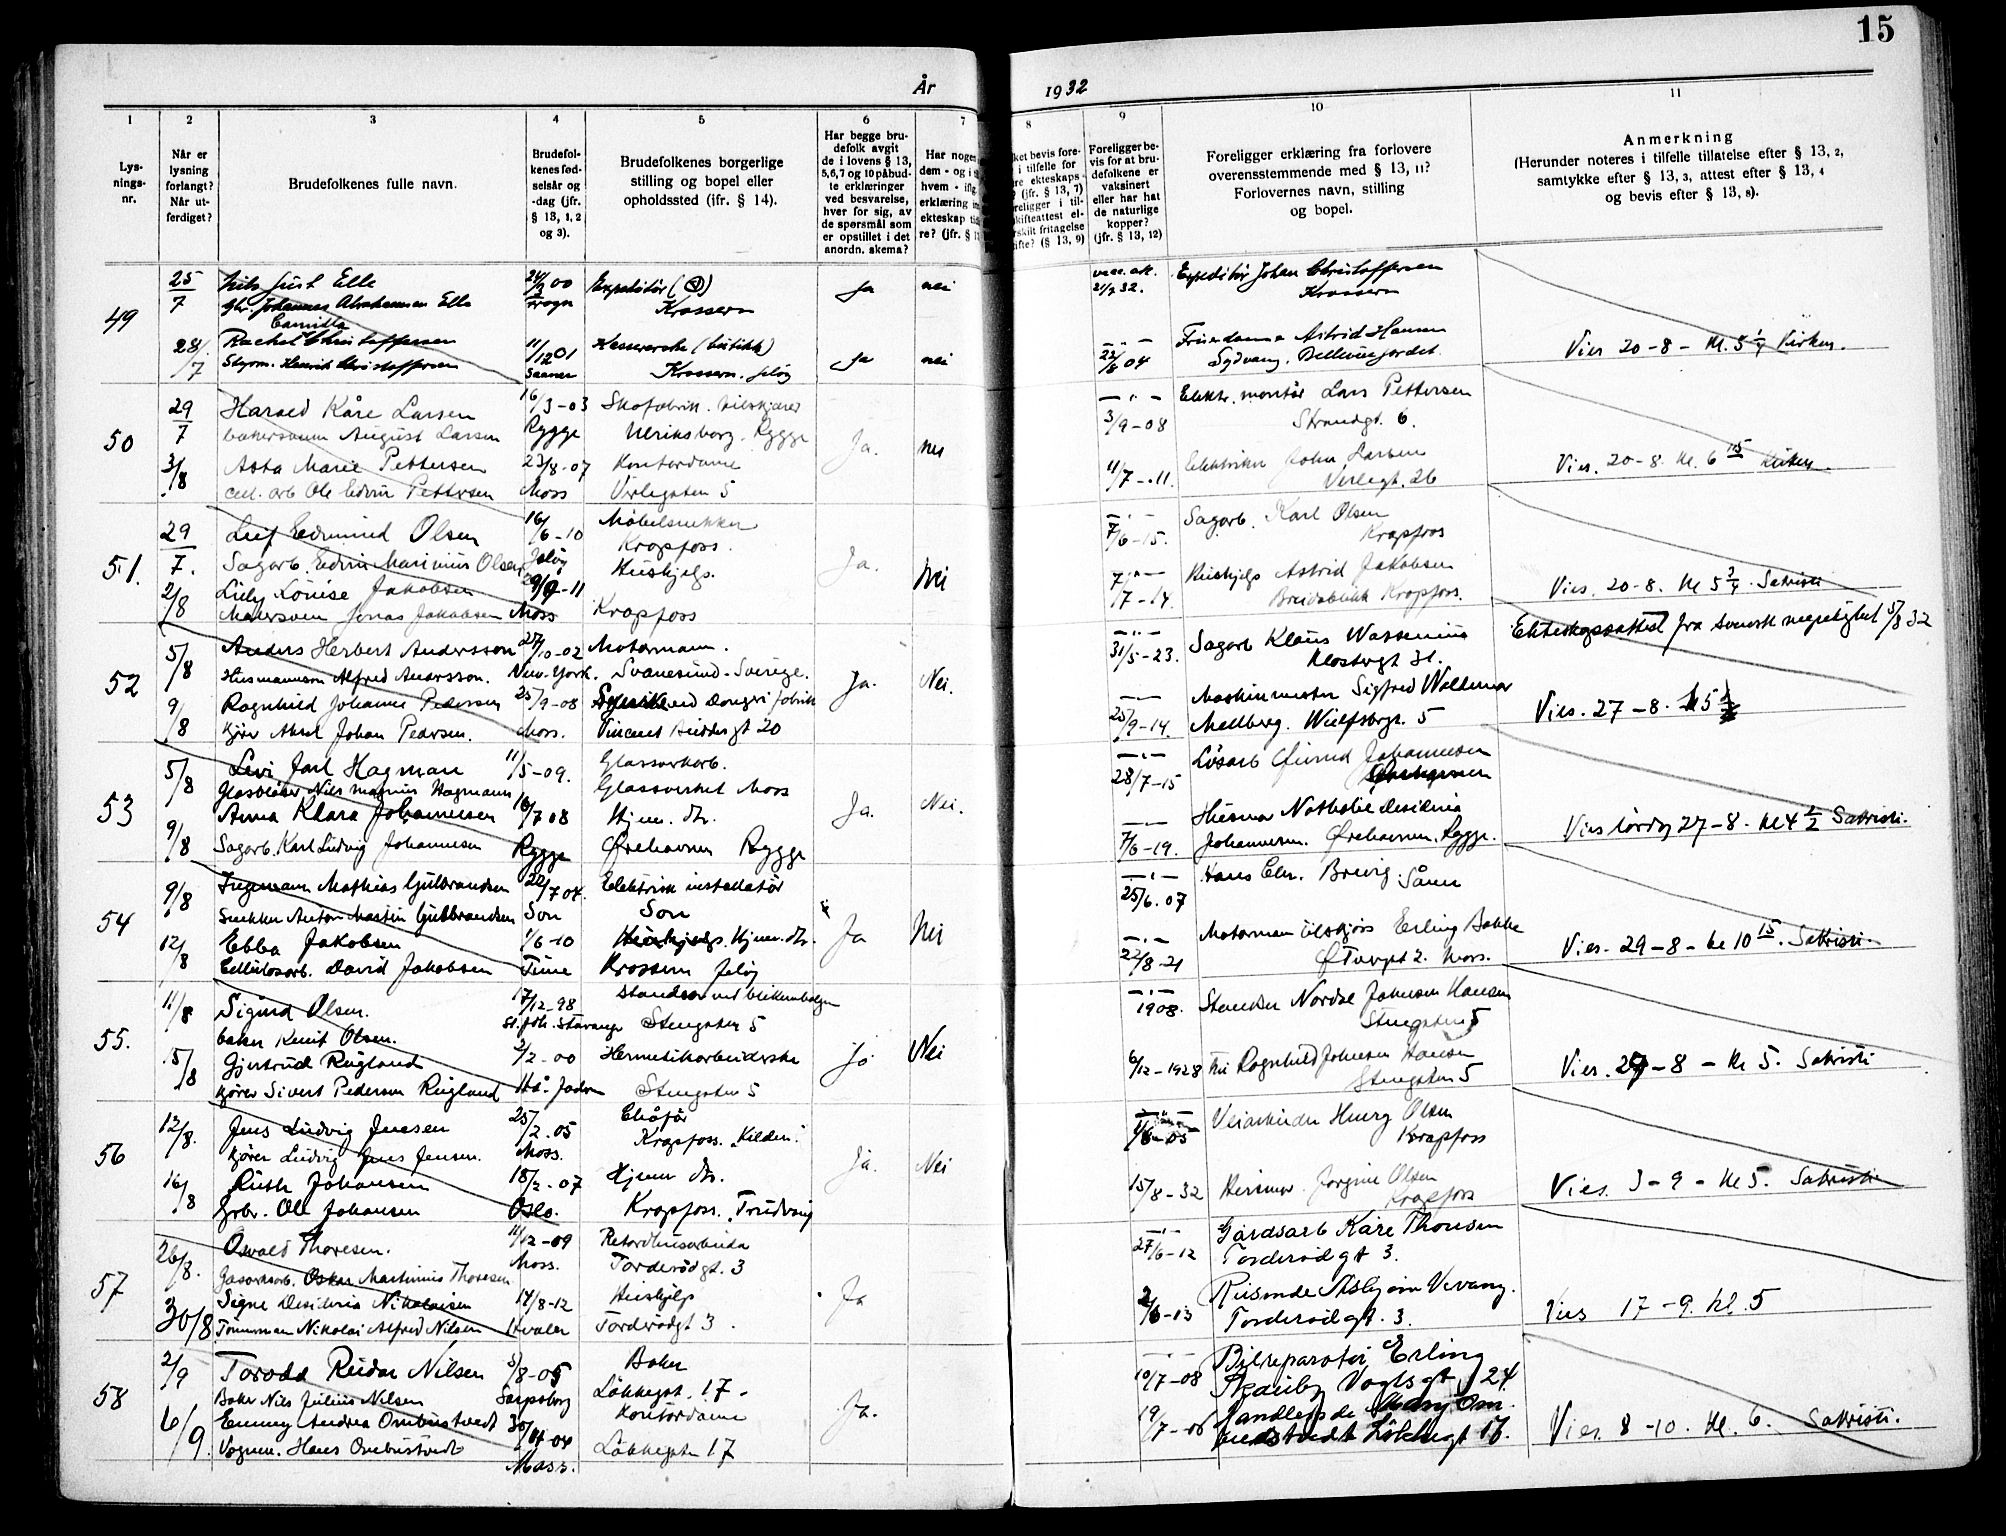 15
År 1932
1 2 3 4 5 6 7 8 9 10 11
Lys-
nings-
nr.
Når er
lysning
forlangt?
Når ut-
ferdiget?
Brudefolkenes fulle navn.
Brudefol-
kenes fød-
selsår og
-dag (jfr.
§ 13, 1, 2
og 3).
Brudefolkenes borgerlige
stilling og bopel eller
opholdssted (jfr. § 14).
Har begge bru-
defolk avgit
de i lovens § 13,
5, 6, 7 og 10 påbud-
te erklæringer
ved besvarelse,
hver for sig, av
de spørsmål som
er opstillet i det
anordn. skema?
Har nogen
dem - og i
hvem - iflg.
erklæring
ekteskap
re? (jfr. §
ket bevis fore-
i tilfelle for
re ekteskaps-
? (jfr. § 13, 7)
religger i til-
skifteattest el-
rskilt fritagelse
ifte? (§ 13, 9)
Foreligger be-
vis for at bru-
defolkene er
vaksinert
eller har hat
de naturlige
kopper?
(jfr. § 13, 12)
Foreligger erklæring fra forlovere
overensstemmende med § 13, 11?
Forlovernes navn, stilling
og bopel.
Anmerkning
(Herunder noteres i tilfelle tillatelse efter § 13, 2,
samtykke efter § 13, 3, attest efter § 13, 4
og bevis efter § 13, 8).
49
25/7 Nils Just Elle 24/2 00 Expeditør Ja nei
Johannes Abrahamsen Elle Frogn Krossern
Camilla
28/7 Rachel Christoffersen 11/12 01 Kassererske (butikk) Ja nei
Styrm. Henrik Christoffersen Saaner Krossern. Jeløy
Expeditør Johan Christoffersen
Krossern
22/8 04 Astrid Hansen
Vies 20-8- kl. 5 1/4 Kirken.
50
29/7 Harald Kåre Larsen 16/3-03 Skofabrik.
bakersvenn August Larsen Rygge Ulriksborg. Rygge Ja. nei
3/8 Asta Marie Pettersen 23/8-07 Kontordame
cell. arb Ole Edvin Pettersen Moss Verlegaten 5
Elektr. montør Lars Pettersen
3/9-08 Strandgt. 6.
4/7-11. Elektriker John Larsen
Verlegt. 26
Vies. 20-8. kl. 6 15 Kirken.
51.
29/7. Leif Edmund Olsen 16/6-10 Møbelsnekker
Sagarb. Edvin Marinius Olsen Jeløy Krapfoss. Ja. Nei
2/8 Lily Louise Jakobsen 29/9-11 Hushjelp.
Malersvenn Jonas Jakobsen Moss Krapfoss
Sagarb. Karl Olsen
7/6-15. Krapfoss
Hushjelp Astrid Jakobsen
7/7-14. Breidablikk Krapfoss.
Vies. 20-8. kl 5 3/4. Sakristi
52
5/8 Anders Herbert Andersson 27/10-02 Motormann.
Husmannsøn Alfred Andersson. New-York. Svanesund-Sverige. Ja. Nei.
9/8 Ragnhild Johanne Pedersen 25/9-08 Syerske ved Dongeri fabrik
Kjører Aksel Johan Pedersen. Moss. Vincent Buddes gt 20
Sagarb Klaus Wassenius
31/5-23. Klostergt 31.
Maskinmester Sigfred Waldemar
25/9-14. Mellberg. Wulfsbergt. 5
Ekteskapsattest fra svensk myndighet 5/8 32
Vies. 27-8. kl 5
53
5/8 Levi Jarl Hagman 11/5-09. Glassverkarb.
Glassblåser Nils Magnus Hagmann Glassverket Moss
9/8 Anna Klara Johannesen 16/7 08 Hjem. dtr. Ja. Nei.
Sagarb. Karl Ludvig Johannesen Rygge Ørehavnen Rygge
Løsarb Gunnd Johannesen
28/7-15
Husmor Nathalie Desideria
7/6-19. Johannesen. Ørehavnen. Rygge.
Vies lørdag 27-8. kl 4 1/2 Sakristi.
54
9/8 Ingemann Mathias Gulbrandsen 22/7 04. Elektrisk installatør
Snekker Anton Martin Gulbrandsen Son Son
12/8 Ebba Jakobsen 1/6-10 Hushjelp. Hjem. dtr. Ja Nei
Cellulosarb. David Jakobsen Time Krossern Jeløy
Hans Chr. Brevig. Såner
25/6. 07
Motormann Erling Bakke
22/8-21 Ø Torvgt 2. Moss.
Vies. 29-8- kl 10 15. Sakristi.
55.
11/8 Sigurd Olsen. 17/12-98
baker Knut Olsen. St. Joh. Stavanger Stengaten 5
15/8 Gjertrud Rugland 2/2-00 Hermetikarbeiderske Ja Nei
Kjører Sivert Pedersen Rugland Hå. Jæren Stengaten 5
1908. Stanser Nordal Johnsen Hansen
Stengaten 5
6/12-1928 Fru Ragnhild Johnsen Hansen
Stengaten 5
Vies. 29-8- kl 5. Sakristi
56
12/8. Jens Ludvig Jensen 25/2-05 Chåfør
Kjører Ludvig Jens Jensen. Moss. Krapfoss. Kilden.
16/8 Ruth Johansen 18/2-07 Hjem dtr. Ja. Nei
Grbr. Ole Johansen Oslo. Krapfoss. Trudvang
Veiarbeider Henry Olsen
Krapfoss
15/8-32 Husmor. Jorgine Olsen
Krapfoss
Vies. 3-9- kl 5. Sakristi
57
26/8. Osvald Thoresen. 11/12-09 Retorthusarbeider
Gasverksarb. Oskar Martinius Thoresen Moss. Torderødgt. 3
30/8 Signe Desideria Nikolaisen 14/8-12 Hushjelp Ja
Tømmermann Nikolai Alfred Nilsen Hvaler Torderødgt 3.
Gårdsarb Kåre Thoresen
27/6-12 Torderød gt 3.
2/6-13 Reisende Asbjørn Vevang.
Torderødgt. 3.
Vies 17-9. kl. 5
58
2/9 Torodd Reidar Nilsen 5/8-05 Baker
Baker Nils Julius Nilsen Sarpsborg Løkkegat. 17-
6/9. Emmy Andrea Ombustvedt 30/4-04 Kontordame Ja.
Vognm. Hans Ombustvedt Moss. Løkkegaten 17
Bilreparatør Erling
10/7-08 Skauby Vogts gt 24
19/7-06 Handlende Mary Om-
bustvedt Løkkegt 17.
Vies. 8-10. kl. 6. Sakristi.